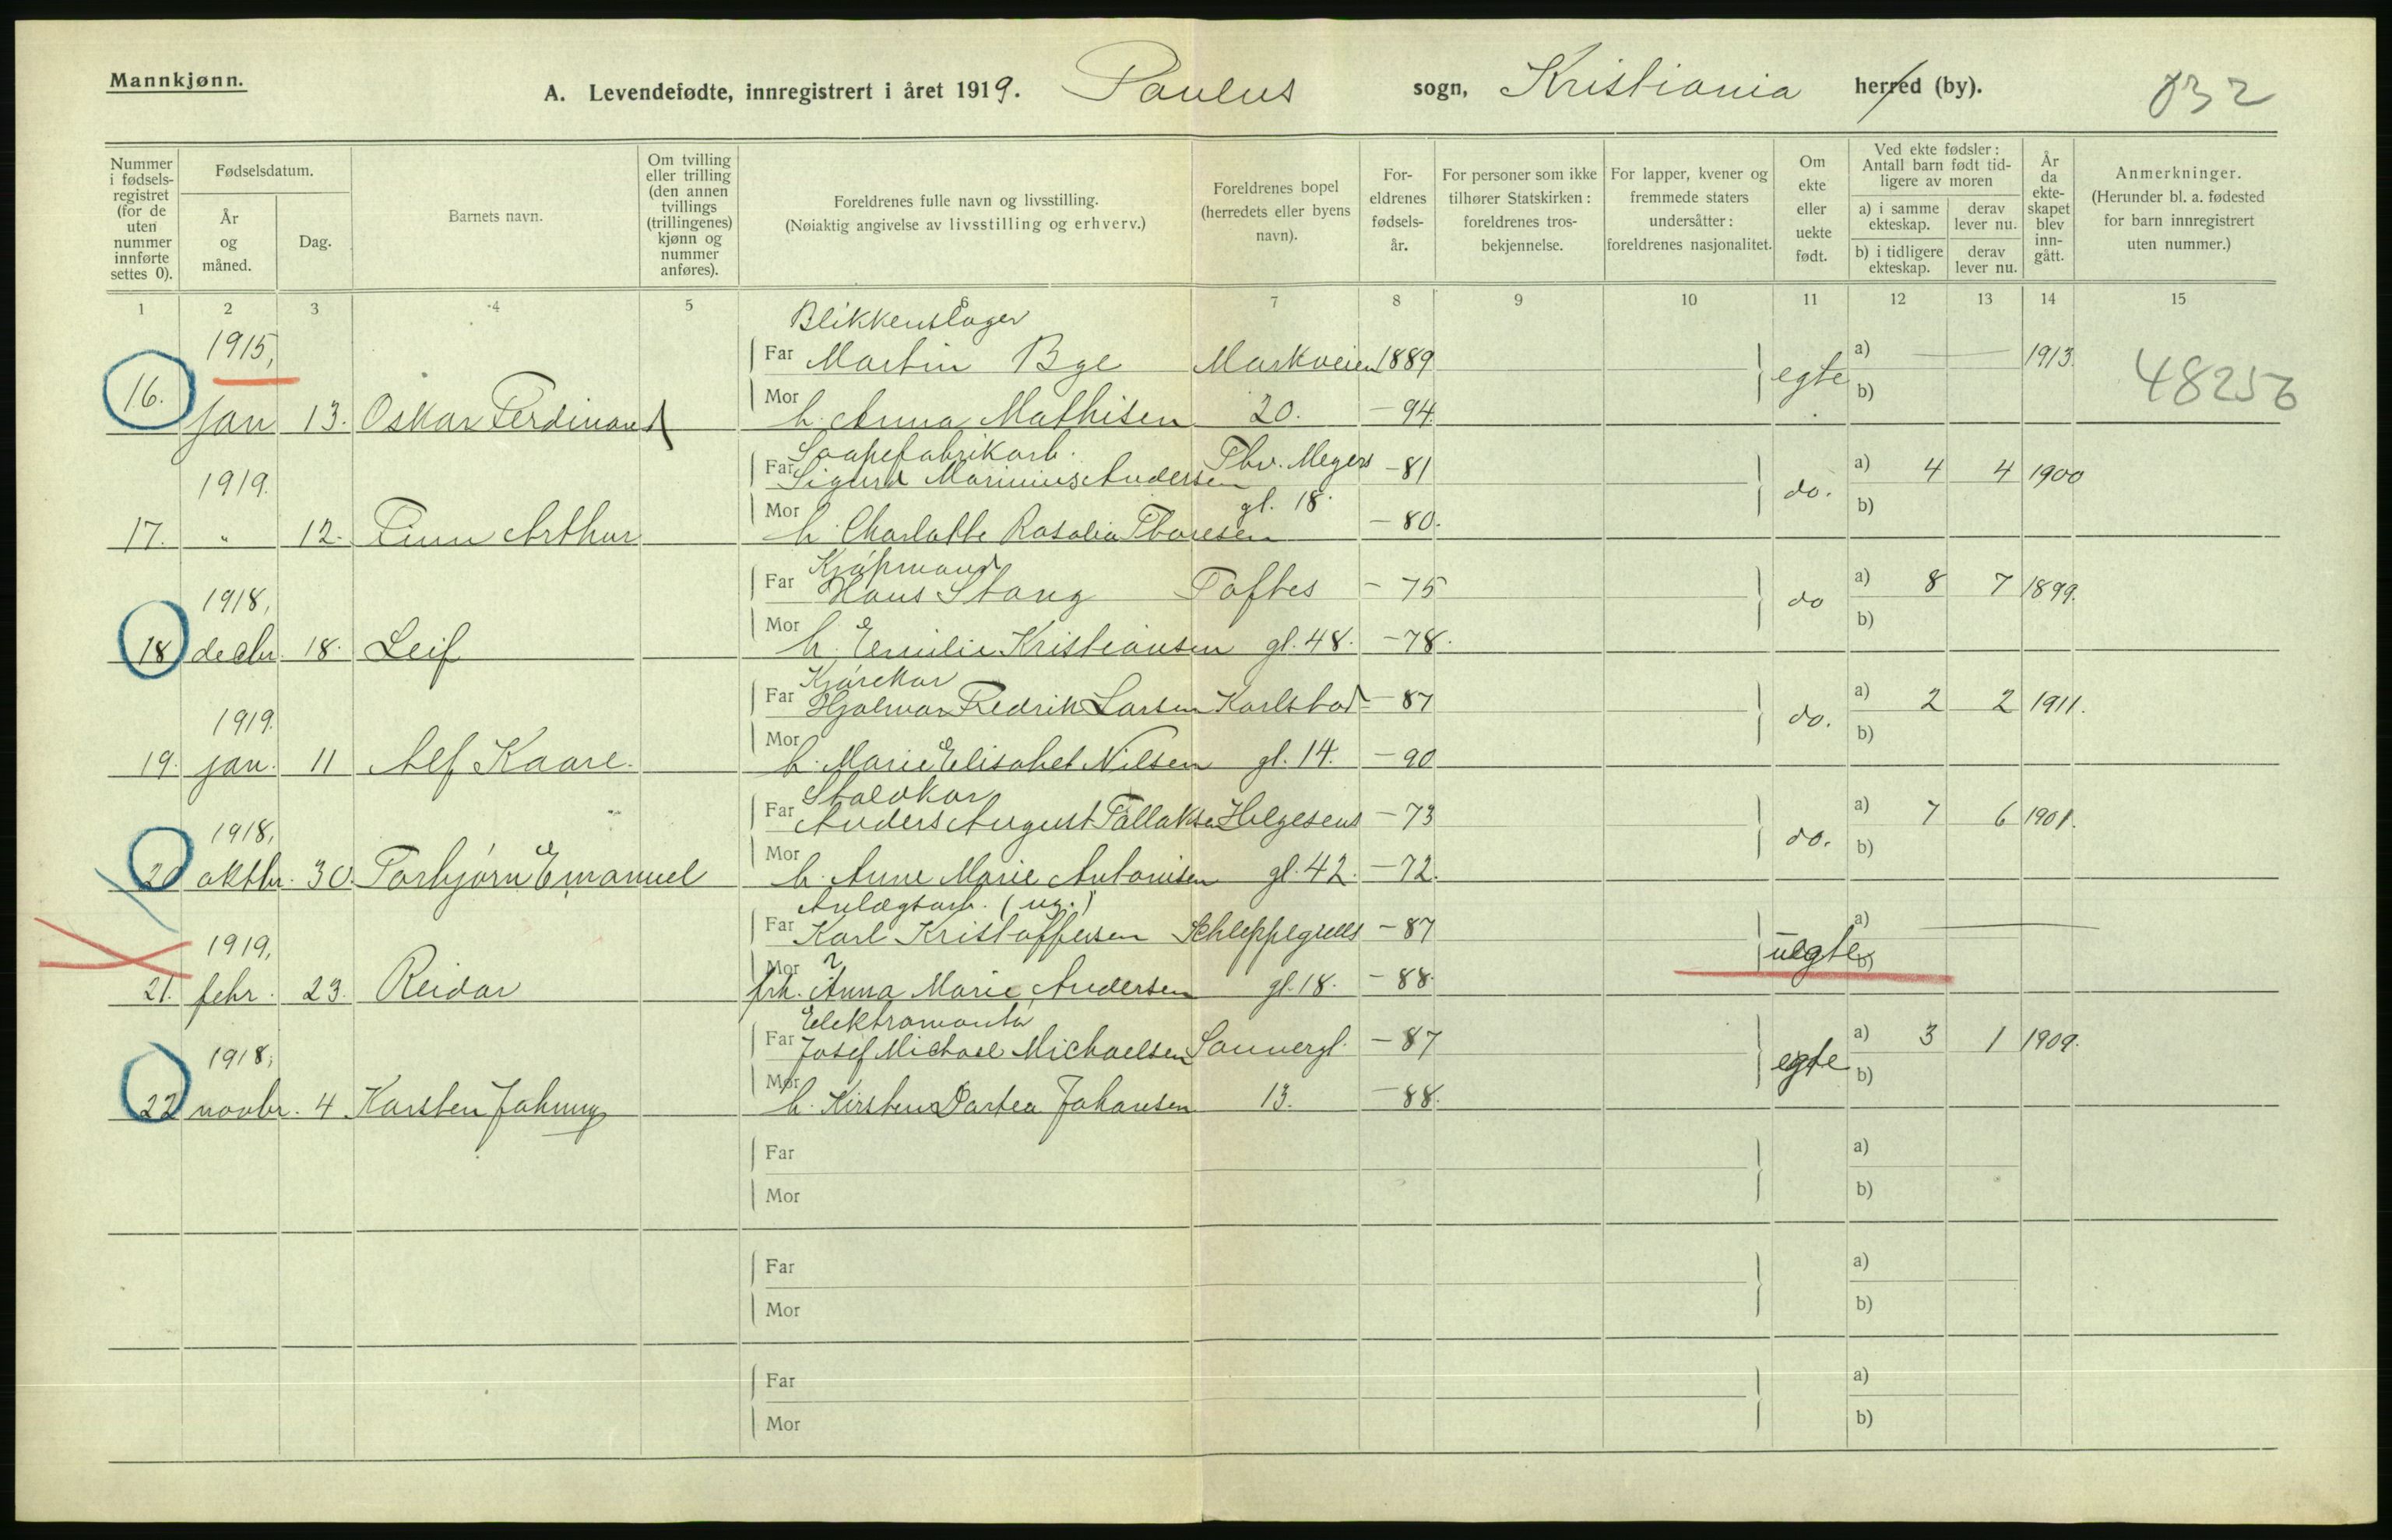 Mannkjønn.
A. Levendefødte, innregistrert i året 1919. Paulus sogn, Kristiania herred (by). 032
Nummer i fødsels-registret (for de uten nummer innførte settes 0).
Fødselsdatum.
År og måned.
Dag.
Barnets navn.
Om tvilling eller trilling (den annen tvillings (trillingenes) kjønn og nummer anføres).
Foreldrenes fulle navn og livsstilling.
(Nøiaktig angivelse av livsstilling og erhverv.)
Foreldrenes bopel (herredets eller byens navn).
For-eldrenes fødsels-år.
For personer som ikke tilhører Statskirken: foreldrenes tros-bekjennelse.
For lapper, kvener og fremmede staters undersåtter: foreldrenes nasjonalitet.
Om ekte eller uekte født.
Ved ekte fødsler: Antall barn født tid-ligere av moren
a) i samme ekteskap. derav lever nu.
b) i tidligere ekteskap. derav lever nu.
År da ekte-skapet blev inn-gått.
Anmerkninger.
(Herunder bl. a. fødested for barn innregistrert uten nummer.)
1 2 3 4 5 6 7 8 9 10 11 12 13 14 15
Blikkenslager
1915, Far Martin Bye Markveien 1889 egte a) 1913. 48256
16. jan 13. Oskar Ferdinand Mor h. Anna Mathisen 20. - 94. b)
Saapefabrikarb.
1919. Far Sigurd Marinius Andersen Thv. Meyers - 81 do. a) 4 4 1900
17. " 12. Finn Arthur Mor h. Charlotte Rosalia Thoresen gt. 18. - 80. b)
Kjøpmand
1918, Far Hans Stang Toftes - 75 do a) 8 7 1899.
18 decbr. 18. Leif Mor h. Emilie Kristiansen gt. 48. - 78. b)
Kjørekar
1919. Far Hjalmar Fredrik Larsen Karlstad - 87 do. a) 2 2 1911.
19. jan. 11 Alf Kaare. Mor h. Marie Elisabet Nilsen gt. 14. - 90 b)
Staldkar
1918, Far Anders August Tallaksen Helgesens - 73 do. a) 7 6 1901.
20 oktbr. 30. Torbjørn Emanuel Mor h. Anne Marie Antonisen gt. 42. - 72. b)
Anlægsarb. (ug.)
1919, Far Karl Kristoffersen Schleppegrells - 87 uegte a)
21. febr. 23. Reidar Mor frk. Anna Marie Andersen gt. 18. - 88. b)
Elektromontør
1918, Far Josef Michael Michaelsen Sannergt. - 87 egte a) 3 1 1909.
22 novbr. 4 Karsten Johnny Mor h. Kirsten Dortea Johansen 13. - 88. b)
Far a)
Mor b)
Far a)
Mor b)
Far a)
Mor b)